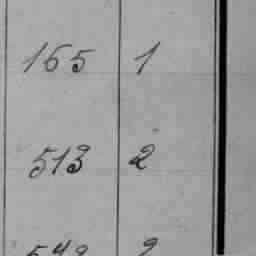 165 1
513 2